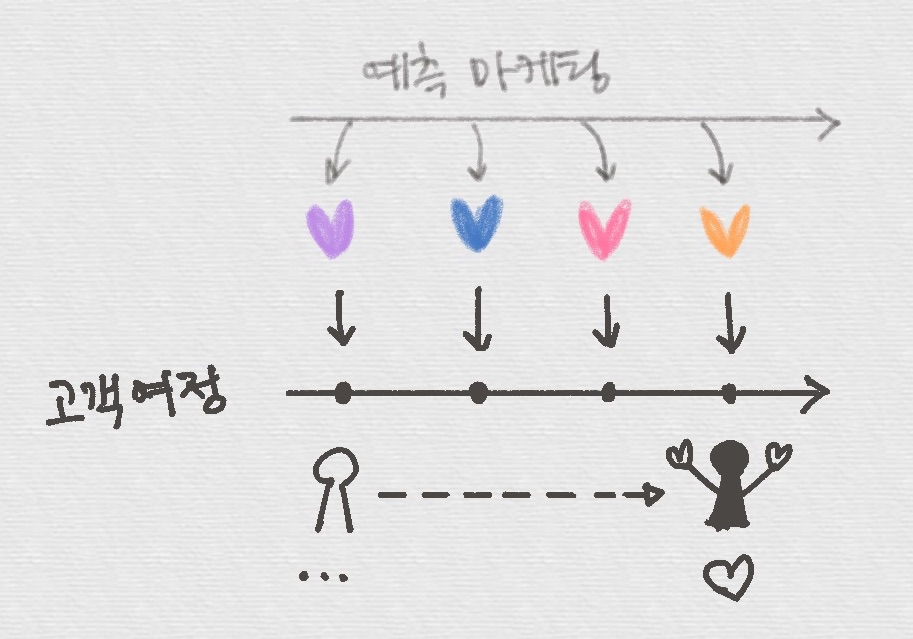 예측 마케팅
고객여정
...